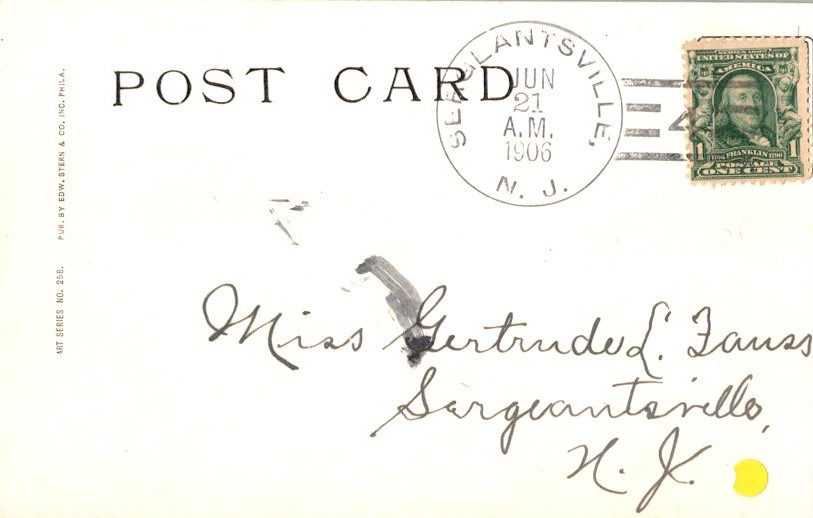 POST CARD
SERGEANTSVILLE,
JUN
21
A.M.
1906
N. J.
4
SERIES 1902
UNITED STATES OF
AMERICA
1 FRANKLIN 1
POSTAGE
ONE CENT
PUB. BY EDW. STERN & CO. INC. PHILA.
ART SERIES NO. 258.
Miss Gertrude L. Fauss
Sergeantsville,
N. J.